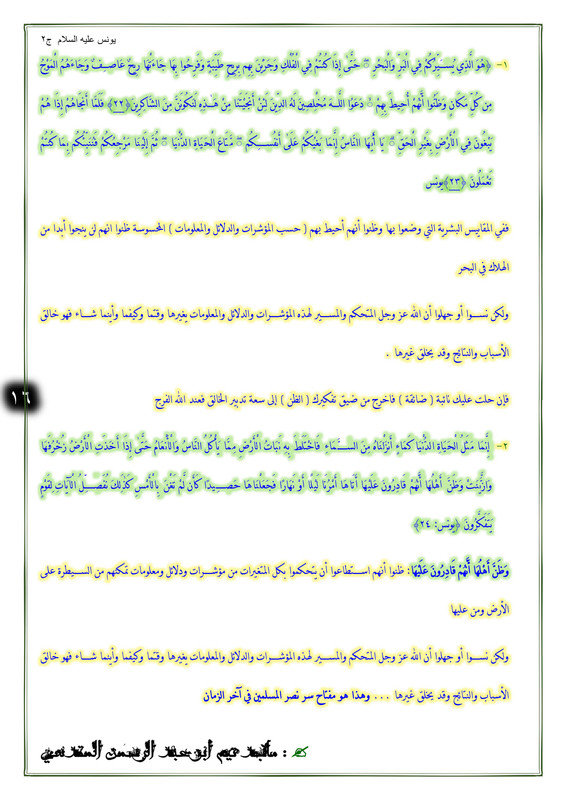 يونس عليه السلام ج٢
١- ﴿هُوَ الَّذِي يُسَيِّرُكُمْ فِي الْبَرِّ وَالْبَحْرِ ۖ حَتَّىٰ إِذَا كُنتُمْ فِي الْفُلْكِ وَجَرَيْنَ بِهِم بِرِيحٍ طَيِّبَةٍ وَفَرِحُوا بِهَا جَاءَتْهَا رِيحٌ عَاصِفٌ وَجَاءَهُمُ الْمَوْجُ
مِن كُلِّ مَكَانٍ وَظَنُّوا أَنَّهُمْ أُحِيطَ بِهِمْ ۙ دَعَوُا اللَّـهَ مُخْلِصِينَ لَهُ الدِّينَ لَئِنْ أَنجَيْتَنَا مِنْ هَـٰذِهِ لَنَكُونَنَّ مِنَ الشَّاكِرِينَ﴿٢٢﴾ فَلَمَّا أَنجَاهُمْ إِذَا هُمْ
يَبْغُونَ فِي الْأَرْضِ بِغَيْرِ الْحَقِّ ۗ يَا أَيُّهَا النَّاسُ إِنَّمَا بَغْيُكُمْ عَلَىٰ أَنفُسِكُم ۖ مَّتَاعَ الْحَيَاةِ الدُّنْيَا ۖ ثُمَّ إِلَيْنَا مَرْجِعُكُمْ فَنُنَبِّئُكُم بِمَا كُنتُمْ
تَعْمَلُونَ ﴿٢٣﴾يونس
ففي المقاييس البشرية التي وضعوا بها وظنوا أنهم أحيط بهم ( حسب المؤشرات والدلائل والمعلومات ) المحسوسة ظنوا انهم لن ينجوا أبدا من
الهلاك في البحر
ولكن نسوا أو جهلوا أن الله عز وجل المتحكم والمسير لهذه المؤشرات والدلائل والمعلومات يغيرها وقتما وكيفما وأينما شاء فهو خالق
الأسباب والنتائج وقد يخلق غيرها .
فإن حلت عليك نائبة ( ضائقة ) فاخرج من ضيق تفكيرك ( الظن ) إلى سعة تدبير الخالق فعند الله الفرج
١٦
٢- إِنَّمَا مَثَلُ الْحَيَاةِ الدُّنْيَا كَمَاءٍ أَنزَلْنَاهُ مِنَ السَّمَاءِ فَاخْتَلَطَ بِهِ نَبَاتُ الْأَرْضِ مِمَّا يَأْكُلُ النَّاسُ وَالْأَنْعَامُ حَتَّىٰ إِذَا أَخَذَتِ الْأَرْضُ زُخْرُفَهَا
وَازَّيَّنَتْ وَظَنَّ أَهْلُهَا أَنَّهُمْ قَادِرُونَ عَلَيْهَا أَتَاهَا أَمْرُنَا لَيْلًا أَوْ نَهَارًا فَجَعَلْنَاهَا حَصِيدًا كَأَن لَّمْ تَغْنَ بِالْأَمْسِ كَذَٰلِكَ نُفَصِّلُ الْآيَاتِ لِقَوْمٍ
يَتَفَكَّرُونَ ﴿يونس: ٢٤﴾
وَظَنَّ أَهْلُهَا أَنَّهُمْ قَادِرُونَ عَلَيْهَا: ظنوا أنهم استطاعوا أن يتحكموا بكل المتغيرات من مؤشرات ودلائل ومعلومات تمكنهم من السيطرة على
الأرض ومن عليها
ولكن نسوا أو جهلوا أن الله عز وجل المتحكم والمسير لهذه المؤشرات والدلائل والمعلومات يغيرها وقتما وكيفما وأينما شاء فهو خالق
الأسباب والنتائج وقد يخلق غيرها ... وهذا هو مفتاح سر نصر المسلمين في آخر الزمان